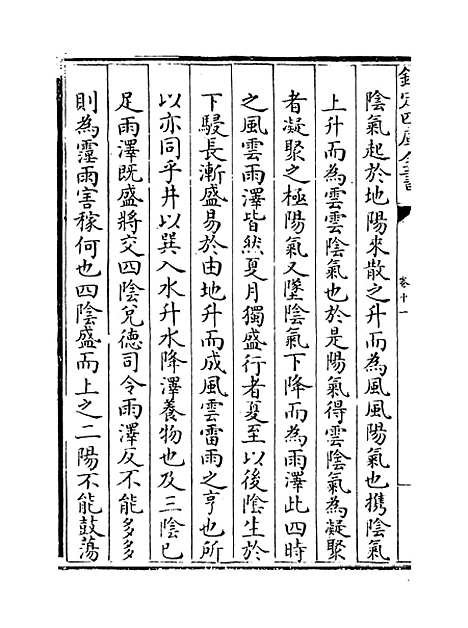 欽定四庫全書
卷十一
陰氣起於地陽來散之升而為風風陽氣也携陰氣
上升而為雲雲陰氣也於是陽氣得雲陰氣為凝聚
者凝聚之極陽氣又墜陰氣下降而為雨澤此四時
之風雲雨澤皆然夏月獨盛行者夏至以後陰生於
下駸長漸盛易於由地升而成風雲雷雨之亨也所
以亦同乎井以巽入水升水降澤養物也及三陰已
足雨澤既盛將交四陰兌德司令雨澤反不能多多
則為霪雨害稼何也四陰盛而上之二陽不能鼓蕩